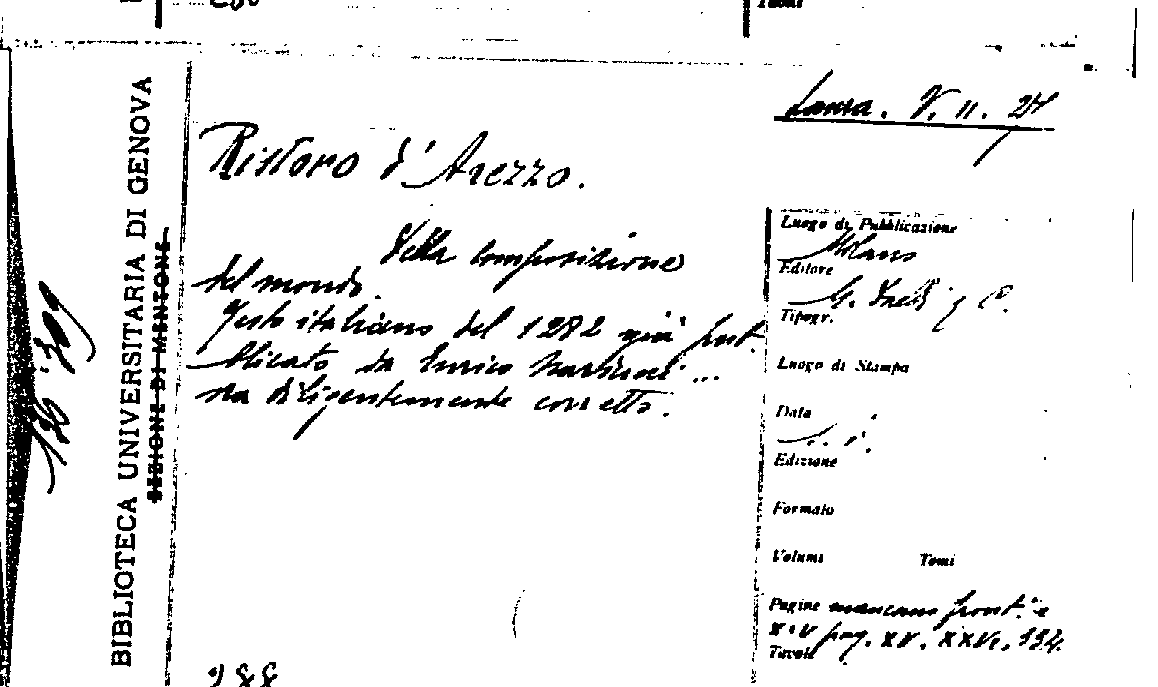 Lanza. V. 11. 27
Ristoro d'Arezzo.
Della composizione
del mondo.
Testo italiano del 1282 già pub-
blicato da Enrico Narducci ...
ora diligentemente corretto.
BIBLIOTECA UNIVERSITARIA DI GENOVA
SEZIONE DI MENTONE
Luogo di Pubblicazione
Milano
Editore
G. Daelli e C.
Tipogr.
Luogo di Stampa
Data
Edizione
Formato
Volumi Tomi
Pagine mancano front. e
pag. XV. XXVI.
Tavole
288